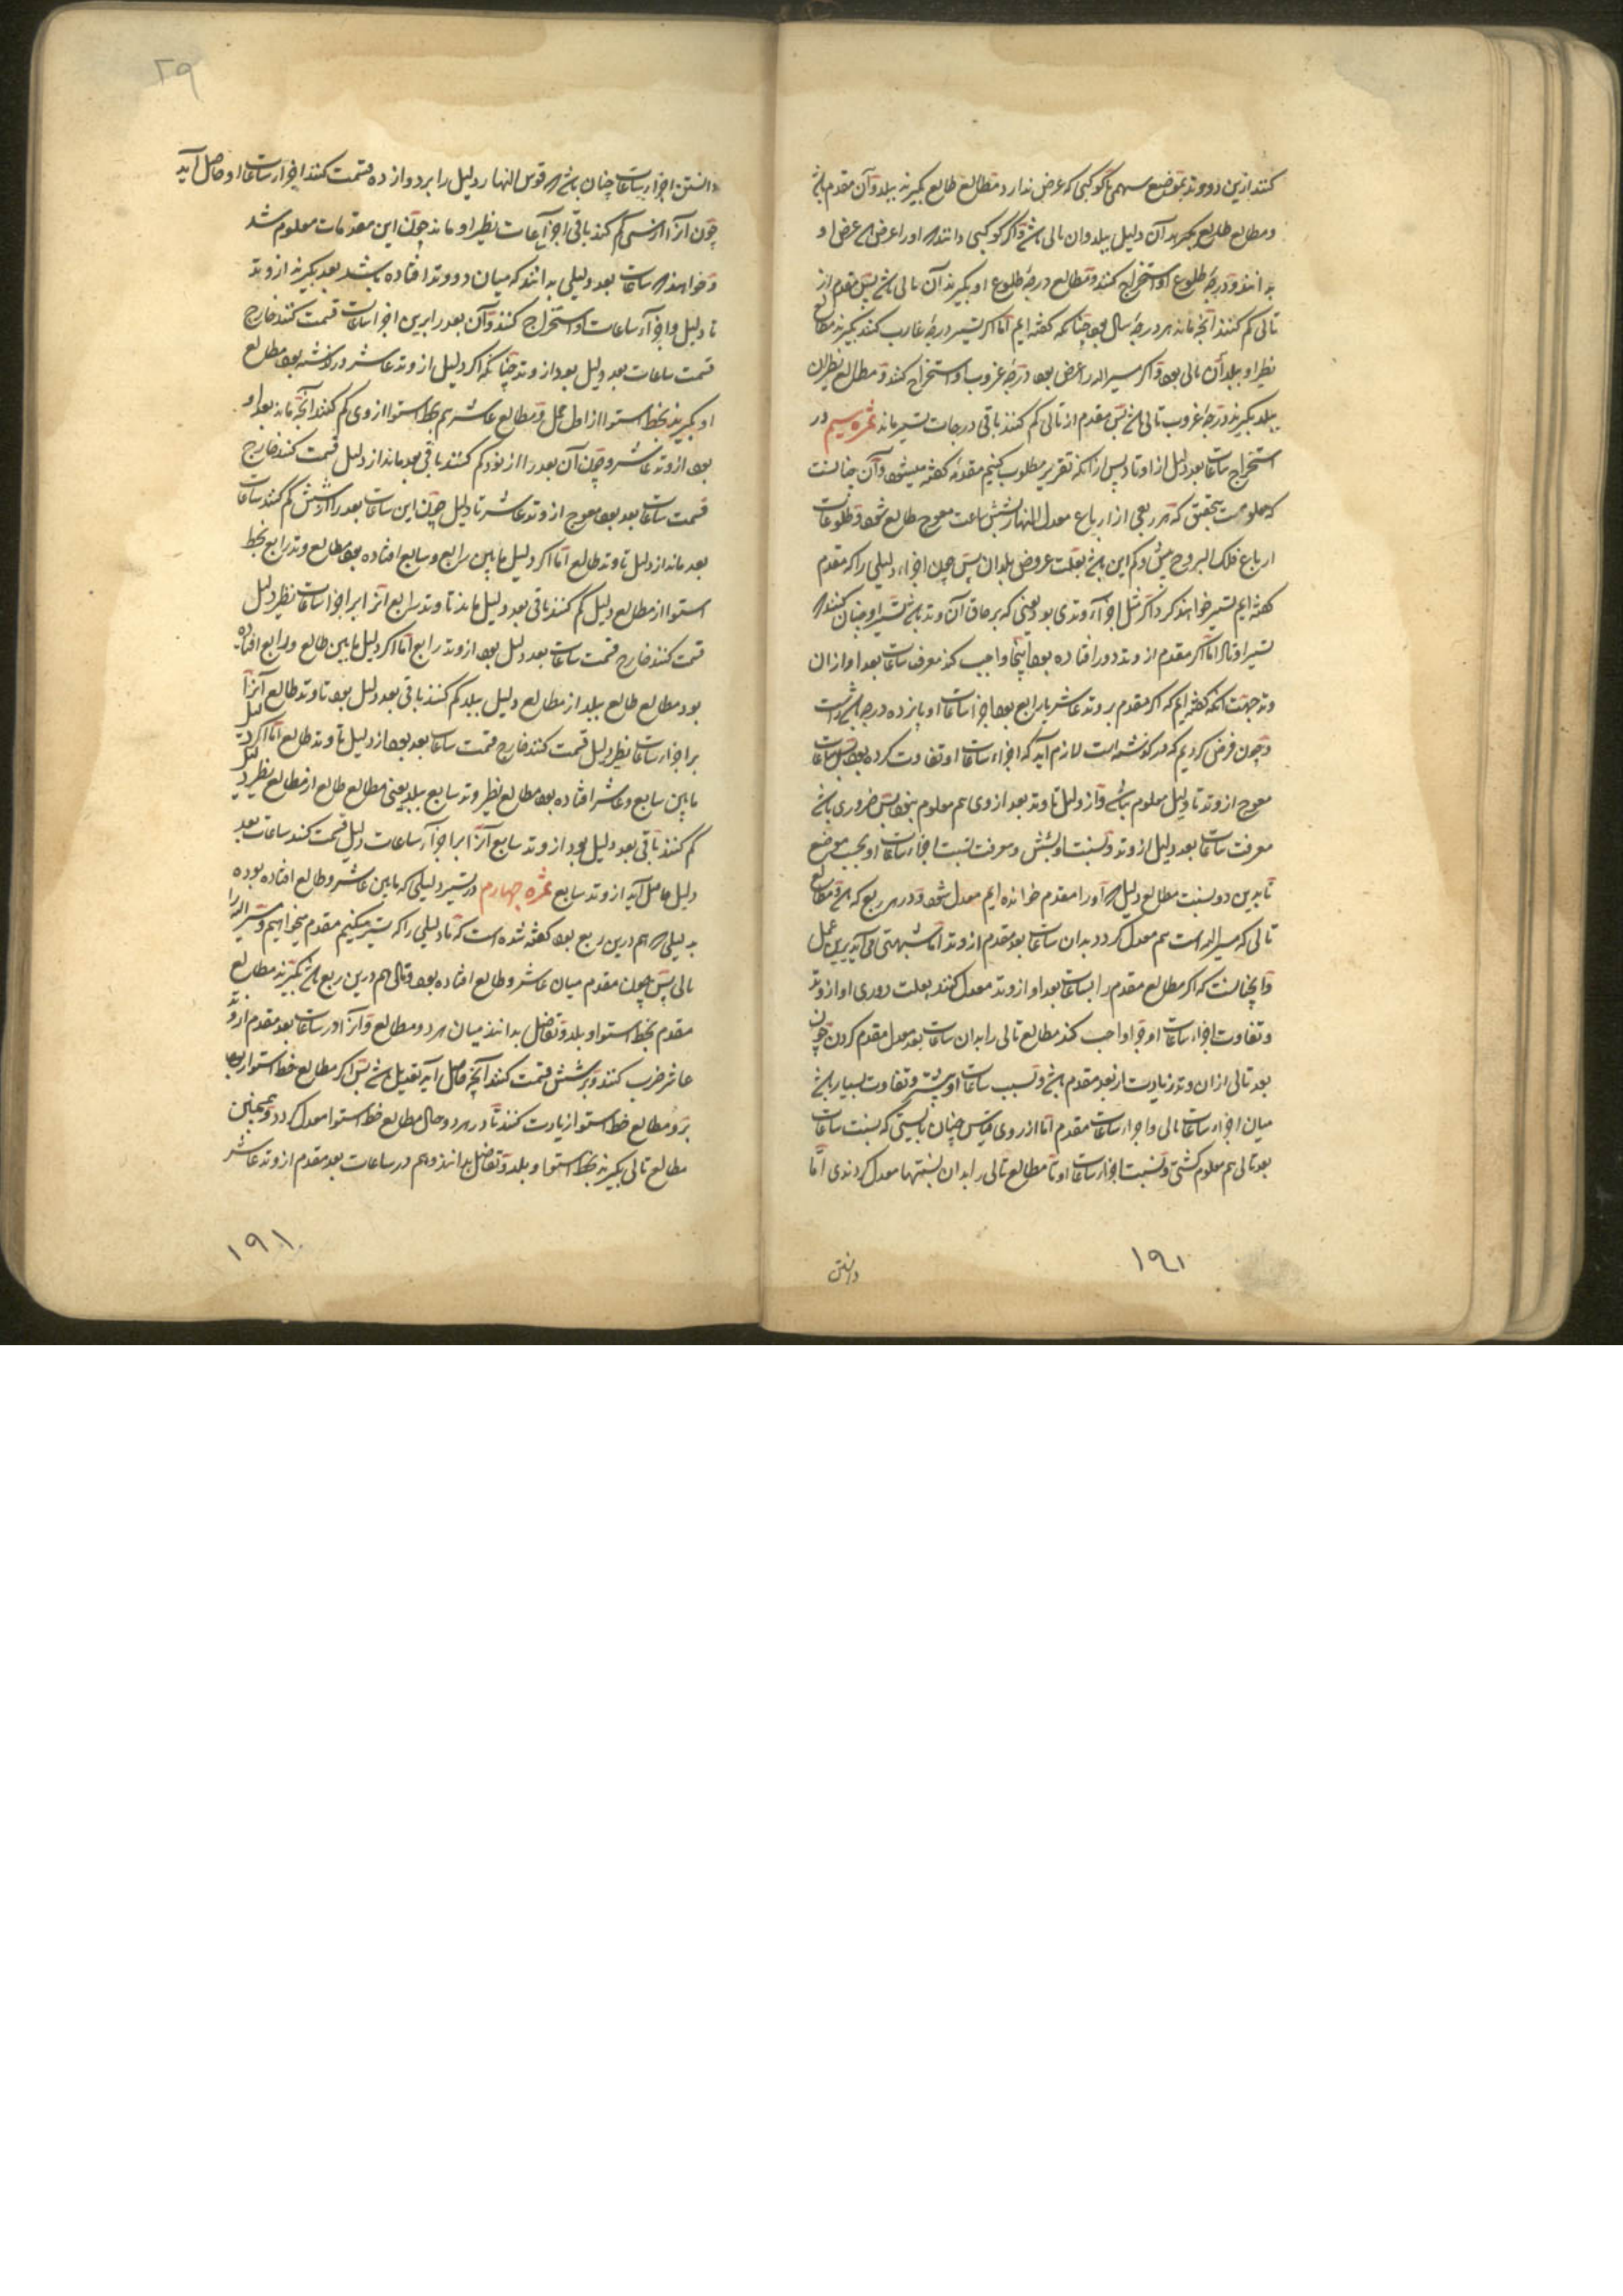 کنند ازین دو وتد بموضع سهمی یا کوکبی که عرض ندارد مطالع طالع بکیرند ببلد وآن مقدم باشد
ومطالع آن دلیل ببلد وان تالی باشد واکر کوکبی دانند اورا عرض عرض او
بدانند ودرجهٔ طلوع او استخراج کنند ومطالع درجهٔ طلوع او بکیرند آن تالی باشد پس مقدم از
تالی کم کنند آنچه ماند هر درجهٔ سال بود چنانکه کفته ایم اما اکر تسیر درجهٔ غارب کنند بکیرند مطالع
نظیر او ببلد آن تالی بود واکر مسیر الیه را عرض بود درجهٔ غروب او استخراج کنند ومطالع نظیر ان
ببلد بکیرند درجهٔ غروب تالی باشد پس مقدم از تالی کم کنند باقی درجات تسیر ماند ثمره سیم در
استخراج ساعات بعد دلیل از اوتاد پس از آنکه تقریر مطلوب کنیم مقدمهٔ کفته میشود وآن چنانست
که معلومست بتحقیق که هر ربعی از ارباع معدل النهار بشش ساعت معوج طالع شود وطلوعات
ارباع فلک البروج بیش وکم این باشد بعلت عروض بلدان پس چون اجزاء دلیلی را که مقدم
کفته ایم تسیر خواهند کرد اکر مثل اجزاء وتدی بود یعنی که بر حاق آن وتد باشد تسیر او چنان کنند که
تسیر اوتاد اما اکر مقدم از وتد دور افتاده بود اینجا واجب کند معرفت ساعات بعد او از ان
وتد جهت آنکه کفته ایم که اکر مقدم بر وتد عاشر یا رابع بود اجزا ساعات او پانزده درجه باشد راست
وچون فرض کردیم که درکذشته است لازم آید که اجزاء ساعات او تفاوت کرده بود پس ساعات
معوج از وتد تا دلیل معلوم باشد واز دلیل تا وتد بعد از وی هم معلوم بود پس ضروری باشد
معرفت ساعات بعد دلیل از وتد ونسبت او بشش ومعرفت نسبت اجزاء ساعات او بحسب موضع
تا بدین دو نسبت مطالع دلیل که اورا مقدم خوانده ایم معدل شود ودر هر ربع که باشد ومطالع
تالی که مسیر الیه است هم معدل کردد بدان ساعات بعد مقدم از وتد اما شبهتی می آید برین عمل
وآنچنانست که اکر مطالع مقدم را بساعات بعد او از وتد معدل کنند بعلت دوری او از وتد
وتفاوت اجزاء ساعات او چرا واجب کند مطالع تالی را بدان ساعات بعد معدل مقدم کردن چون
بعد تالی ازان وتد زیادت از بعد مقدم باشد وبسبب ساعات او بیشتر وتفاوت بسیار باشد
میان اجزاء ساعات تالی واجزاء ساعات مقدم اما از روی قیاس چنان بایستی که نسبت ساعات
بعد تالی هم معلوم کشتی ونسبت اجزاء ساعات او تا مطالع تالی را بدان نسبتها معدل کردندی اما
دانستن
۱۹۱
۲۹
دانستن اجزاء ساعات چنان باشد که قوس النهار دلیل را بر دوازده قسمت کنند اجزاء ساعات او حاصل آید
چون آنرا از سی کم کنند باقی اجزاء ساعات نظیر او ماند چون این مقدمات معلوم شد
وخواهند که ساعات بعد دلیلی بدانند که میان دو وتد افتاده باشد بعد بکیرند از وتد
تا دلیل واجزاء ساعات او استخراج کنند وآن بعد را برین اجزا ساعات قسمت کنند خارج
قسمت ساعات بعد دلیل بود از وتد چنانکه اکر دلیل از وتد عاشر درکذشته بود مطالع
او بکیرند بخط استوا از اول حمل ومطالع عاشر هم بخط استوا از وی کم کنند آنچه ماند بعد او
بود از وتد عاشر وچون آن بعد را از نود کم کنند باقی بعد ماند از دلیل قسمت کنند خارج
قسمت ساعات بعد بود معوج از وتد عاشر تا دلیل چون این ساعات بعد را از شش کم کنند ساعات
بعد ماند از دلیل تا وتد طالع اما اکر دلیل مابین رابع وسابع افتاده بود مطالع وتد رابع بخط
استوا از مطالع دلیل کم کنند باقی بعد دلیل ماند تا وتد رابع آنرا بر اجزا ساعات نظیر دلیل
قسمت کنند خارج قسمت ساعات بعد دلیل بود از وتد رابع اما اکر دلیل مابین طالع ورابع افتاده
بود مطالع طالع ببلد از مطالع دلیل ببلد کم کنند باقی بعد دلیل بود تا وتد طالع آنرا
بر اجزاء ساعات نظیر دلیل قسمت کنند خارج قسمت ساعات بعد بود از دلیل تا وتد طالع اما اکر دلیل
مابین سابع وعاشر افتاده بود مطالع نظیر وتد سابع ببلد یعنی مطالع طالع از مطالع نظیر دلیل
کم کنند باقی بعد دلیل بود از وتد سابع آنرا بر اجزاء ساعات دلیل قسمت کنند ساعات بعد
دلیل حاصل آید از وتد سابع ثمره چهارم در تسیر دلیلی که مابین عاشر وطالع افتاده بوده
بدلیلی که هم درین ربع بود کفته شده است که تا دلیلی را که تسیر میکنیم مقدم میخوانیم ومسیر الیه را
تالی پس چون مقدم میان عاشر وطالع افتاده بود وتالی هم درین ربع باشد بکیرند مطالع
مقدم بخط استوا وببلد وتفاضل بدانند میان هر دو مطالع وآنرا در ساعات بعد مقدم از وتد
عاشر ضرب کنند وبر شش قسمت کنند آنچه حاصل آید تعدیل باشد پس اکر مطالع خط استوا
برو مطالع خط استوا زیادت کنند تا در هر دو حال مطالع خط استوا معدل کردد وهمچنین
مطالع تالی بکیرند بخط استوا وببلد وتفاضل بدانند وهم در ساعات بعد مقدم از وتد عاشر
۱۹۱